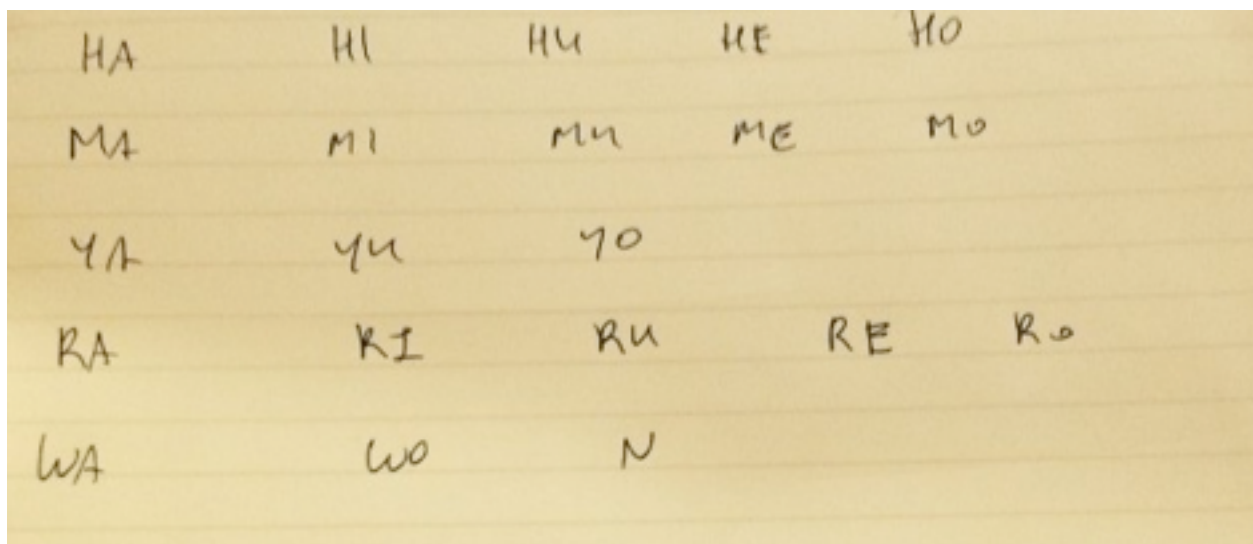 HA HI HU HE HO
MA MI MU ME MO
YA YU YO
RA RI RU RE RO
WA WO N